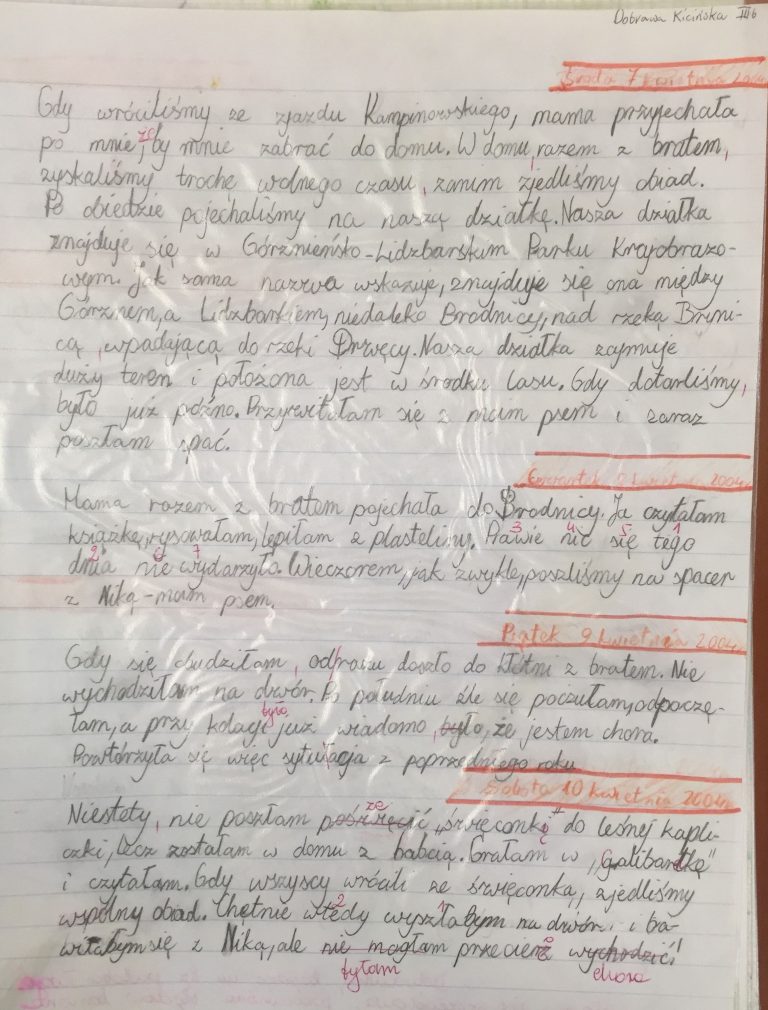 Dobrawa Kicińska IIIb
Środa 7 kwietnia 2004
Gdy wróciliśmy ze zjazdu Kampinowskiego, mama przyjechała
po mnie, że by mnie zabrać do domu. W domu, razem z bratem,
zyskaliśmy trochę wolnego czasu, zanim zjedliśmy obiad.
Po obiedzie pojechaliśmy na naszą działkę. Nasza działka
znajduje się w Górznieńsko-Lidzbarskim Parku Krajobrazo-
wym. Jak sama nazwa wskazuje, znajduje się ona między
Górznem, a Lidzbarkiem, niedaleko Brodnicy, nad rzeką Bryni-
cą, wpadającą do rzeki Drwęcy. Nasza działka zajmuje
duży teren i położona jest w środku lasu. Gdy dotarliśmy,
było już późno. Przywitałam się z mum psem i zaraz
poszłam spać.
Czwartek 8 kwietnia 2004
Mama razem z bratem pojechała do Brodnicy. Ja czytałam
książkę, rysowałam, lepiłam z plasteliny. Prawie nic się tego
3 4 5 1
dnia nie wydarzyło. Wieczorem, jak zwykle, poszliśmy na spacer
2 6 7
z Niką - mum psem.
Piątek 9 kwietnia 2004
Gdy się obudziłam, od razu doszło do kłótni z bratem. Nie
wychodziłam na dwór. Po południu źle się poczułam, odpoczę-
łam, a przy kolacji już wiadomo było, że jestem chora.
było
Powtórzyła się więc sytułacja z poprzedniego roku
Sobota 10 kwietnia 2004
Niestety, nie poszłam poświęcić „święconkę" do leśnej kapli-
ze
czki, lecz zostałam w domu z babcią. Grałam w „Galibardkę"
i czytałam. Gdy wszyscy wrócili ze święconką, zjedliśmy
wspólny obiad. Chętnie wtedy wyszłabym na dwór i ba-
2 1
wiłabym się z Niką, ale nie mogłam przecież wychodzić!
byłam chora